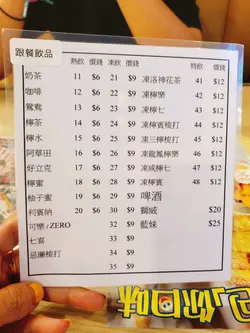 跟餐飲品
熱飲 價錢 凍飲 價錢 特飲 價錢
奶茶 11 $6 21 $9 凍洛神花茶 41 $12
咖啡 12 $6 22 $9 凍檸樂 42 $12
鴛鴦 13 $6 23 $9 凍檸七 43 $12
檸茶 14 $6 24 $9 凍檸賓梳打 44 $12
檸水 15 $6 25 $9 凍三檸梳打 45 $12
阿華田 16 $6 26 $9 凍龍鳳檸樂 46 $12
好立克 17 $6 27 $9 凍咸檸七 47 $12
檸蜜 18 $6 28 $9 凍檸賓 48 $12
柚子蜜 19 $6 29 $9 啤酒
利賓納 20 $6 30 $9 獅威 $20
可樂/ZERO 32 $9 藍妹 $25
七喜 33 $9
忌廉梳打 34 $9
35 $9
回味